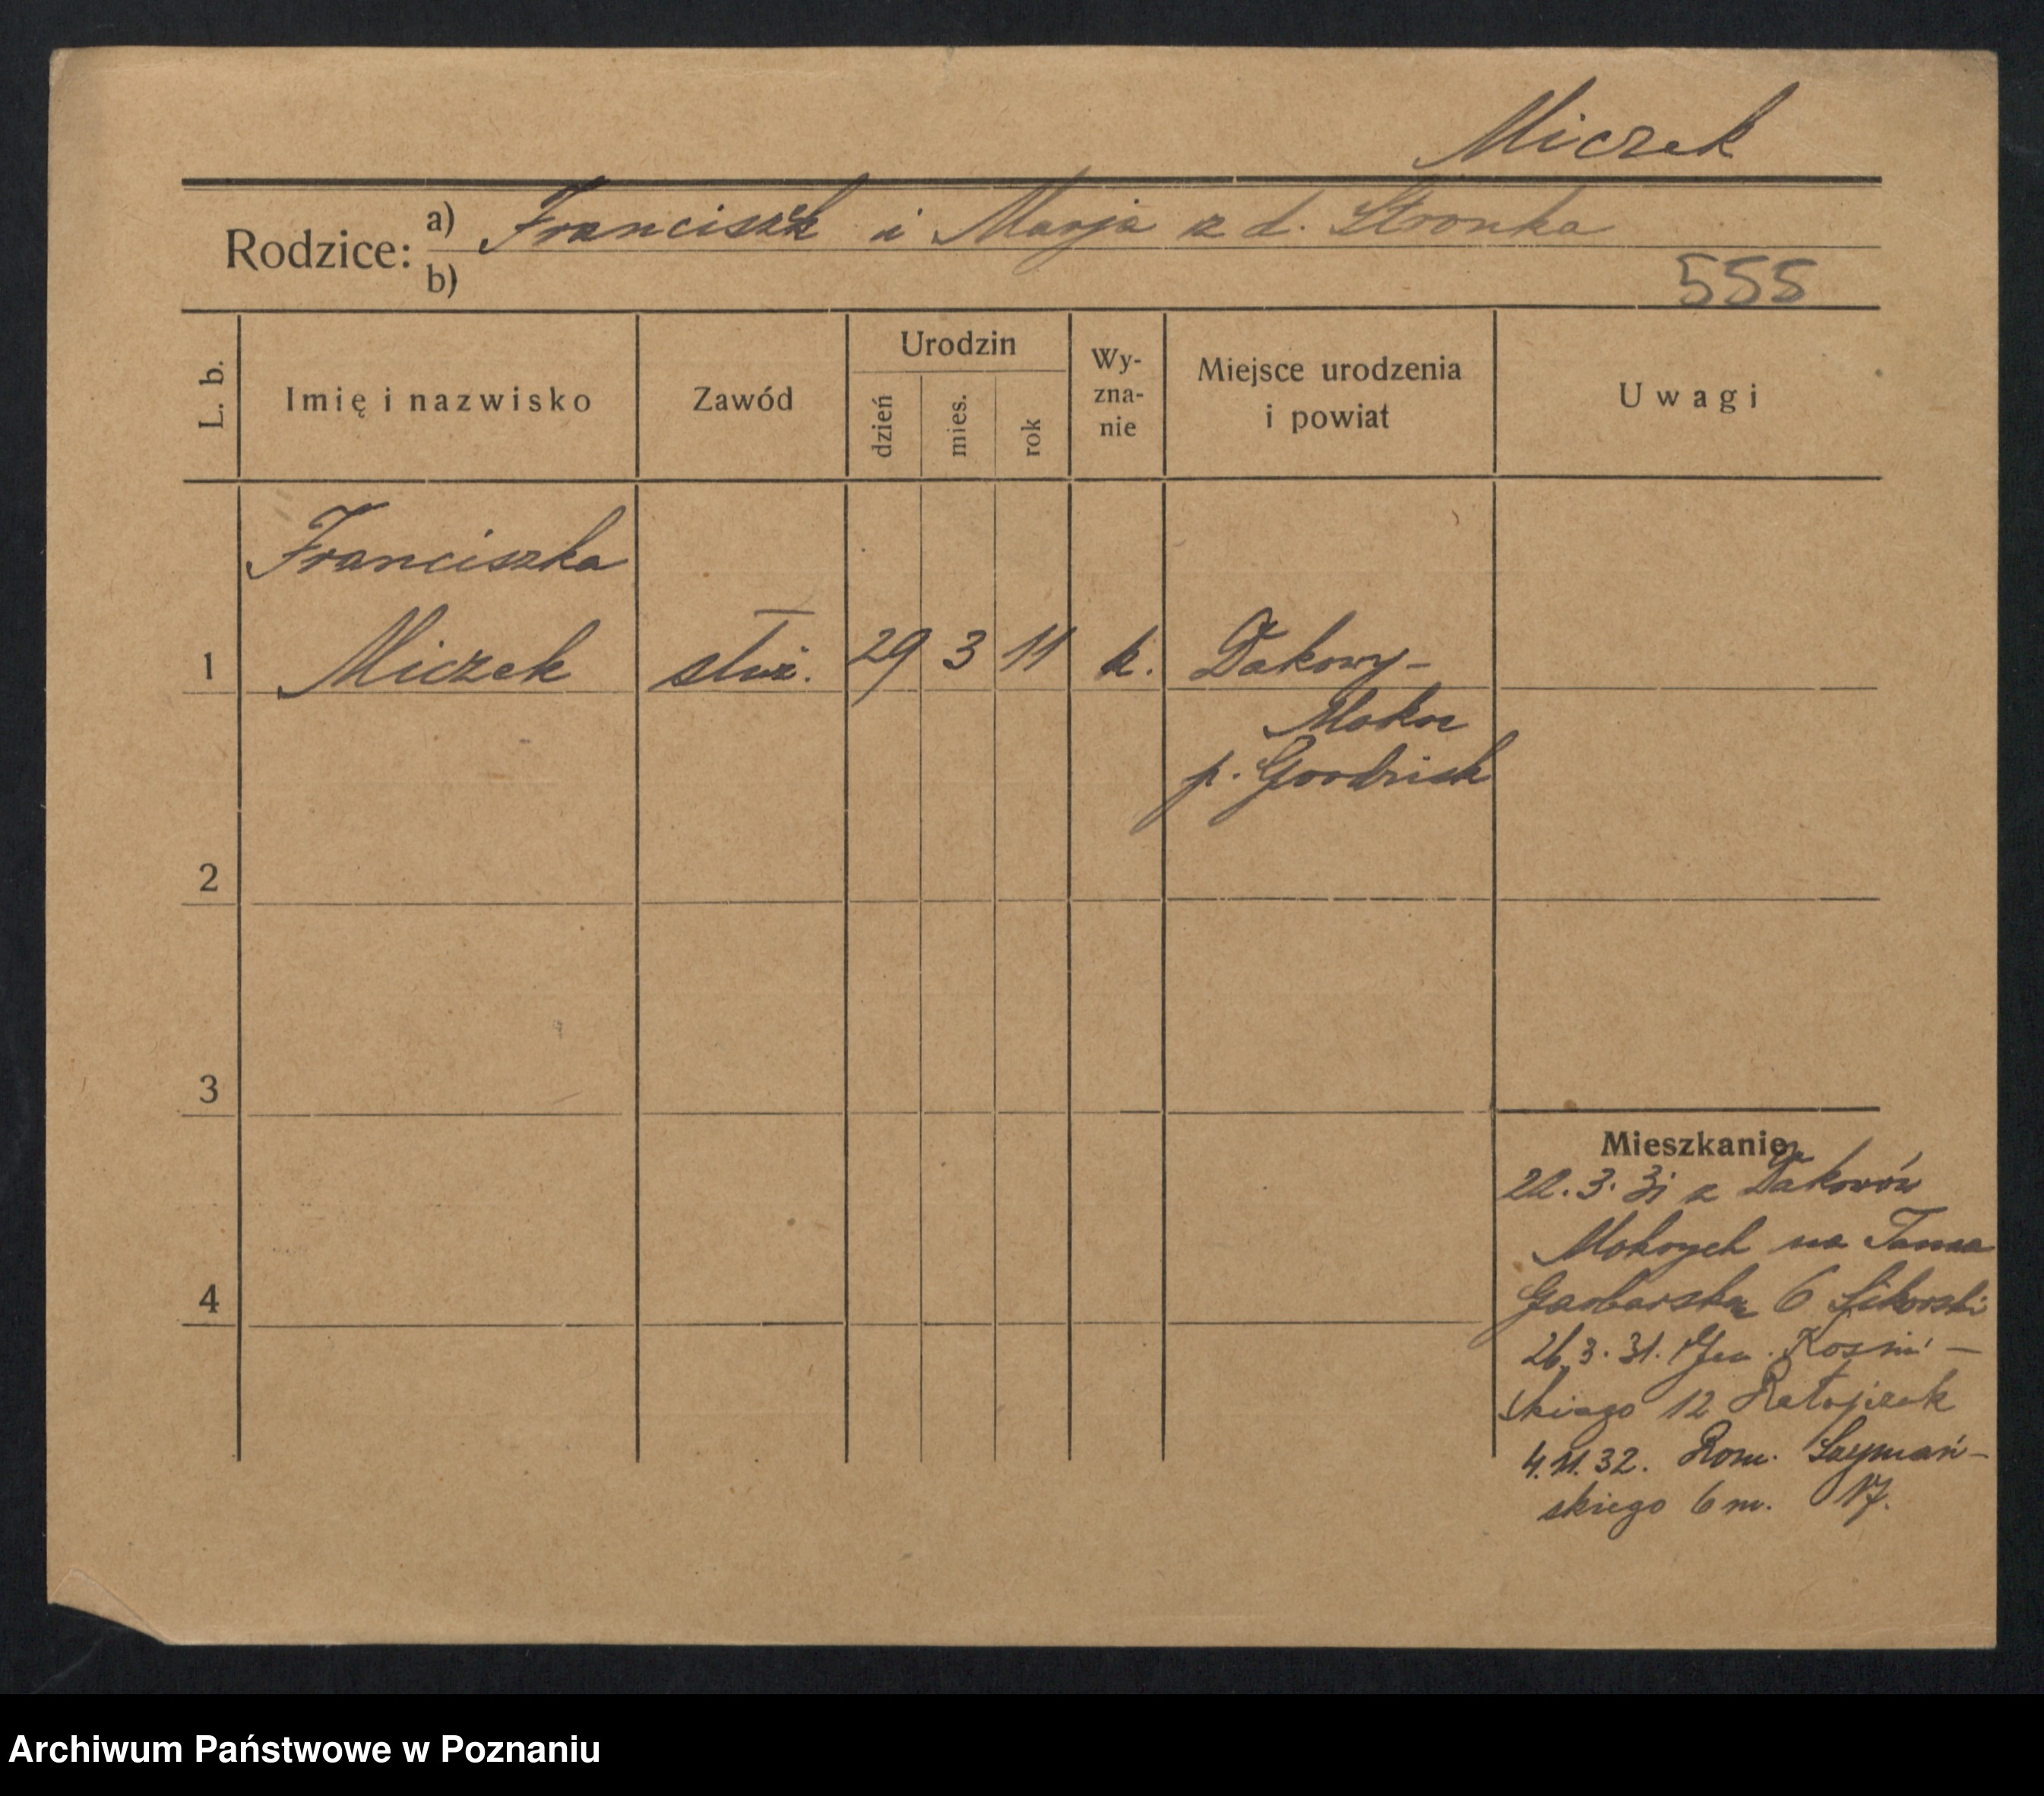 Miczek
Rodzice: a) Franciszek i Marja z d. Stronka
b)
555
L. b.
Imię i nazwisko
Zawód
Urodzin
dzień
mies.
rok
Wy-
zna-
nie
Miejsce urodzenia
i powiat
Uwagi
Franciszka
1 Miczek służ. 29 3 11 k. Dakowy-
Mokre
p. Grodzisk
2
3
4
Mieszkanie
22. 3. 31 z Dakowów
Mokrych na Tama
Garbarska 6 Sikorski
26. 3. 31. Gen. Kosiń-
skiego 12 Ratajczak
4. 11. 32. Rom. Szymań-
skiego 6 m. 17.
Archiwum Państwowe w Poznaniu